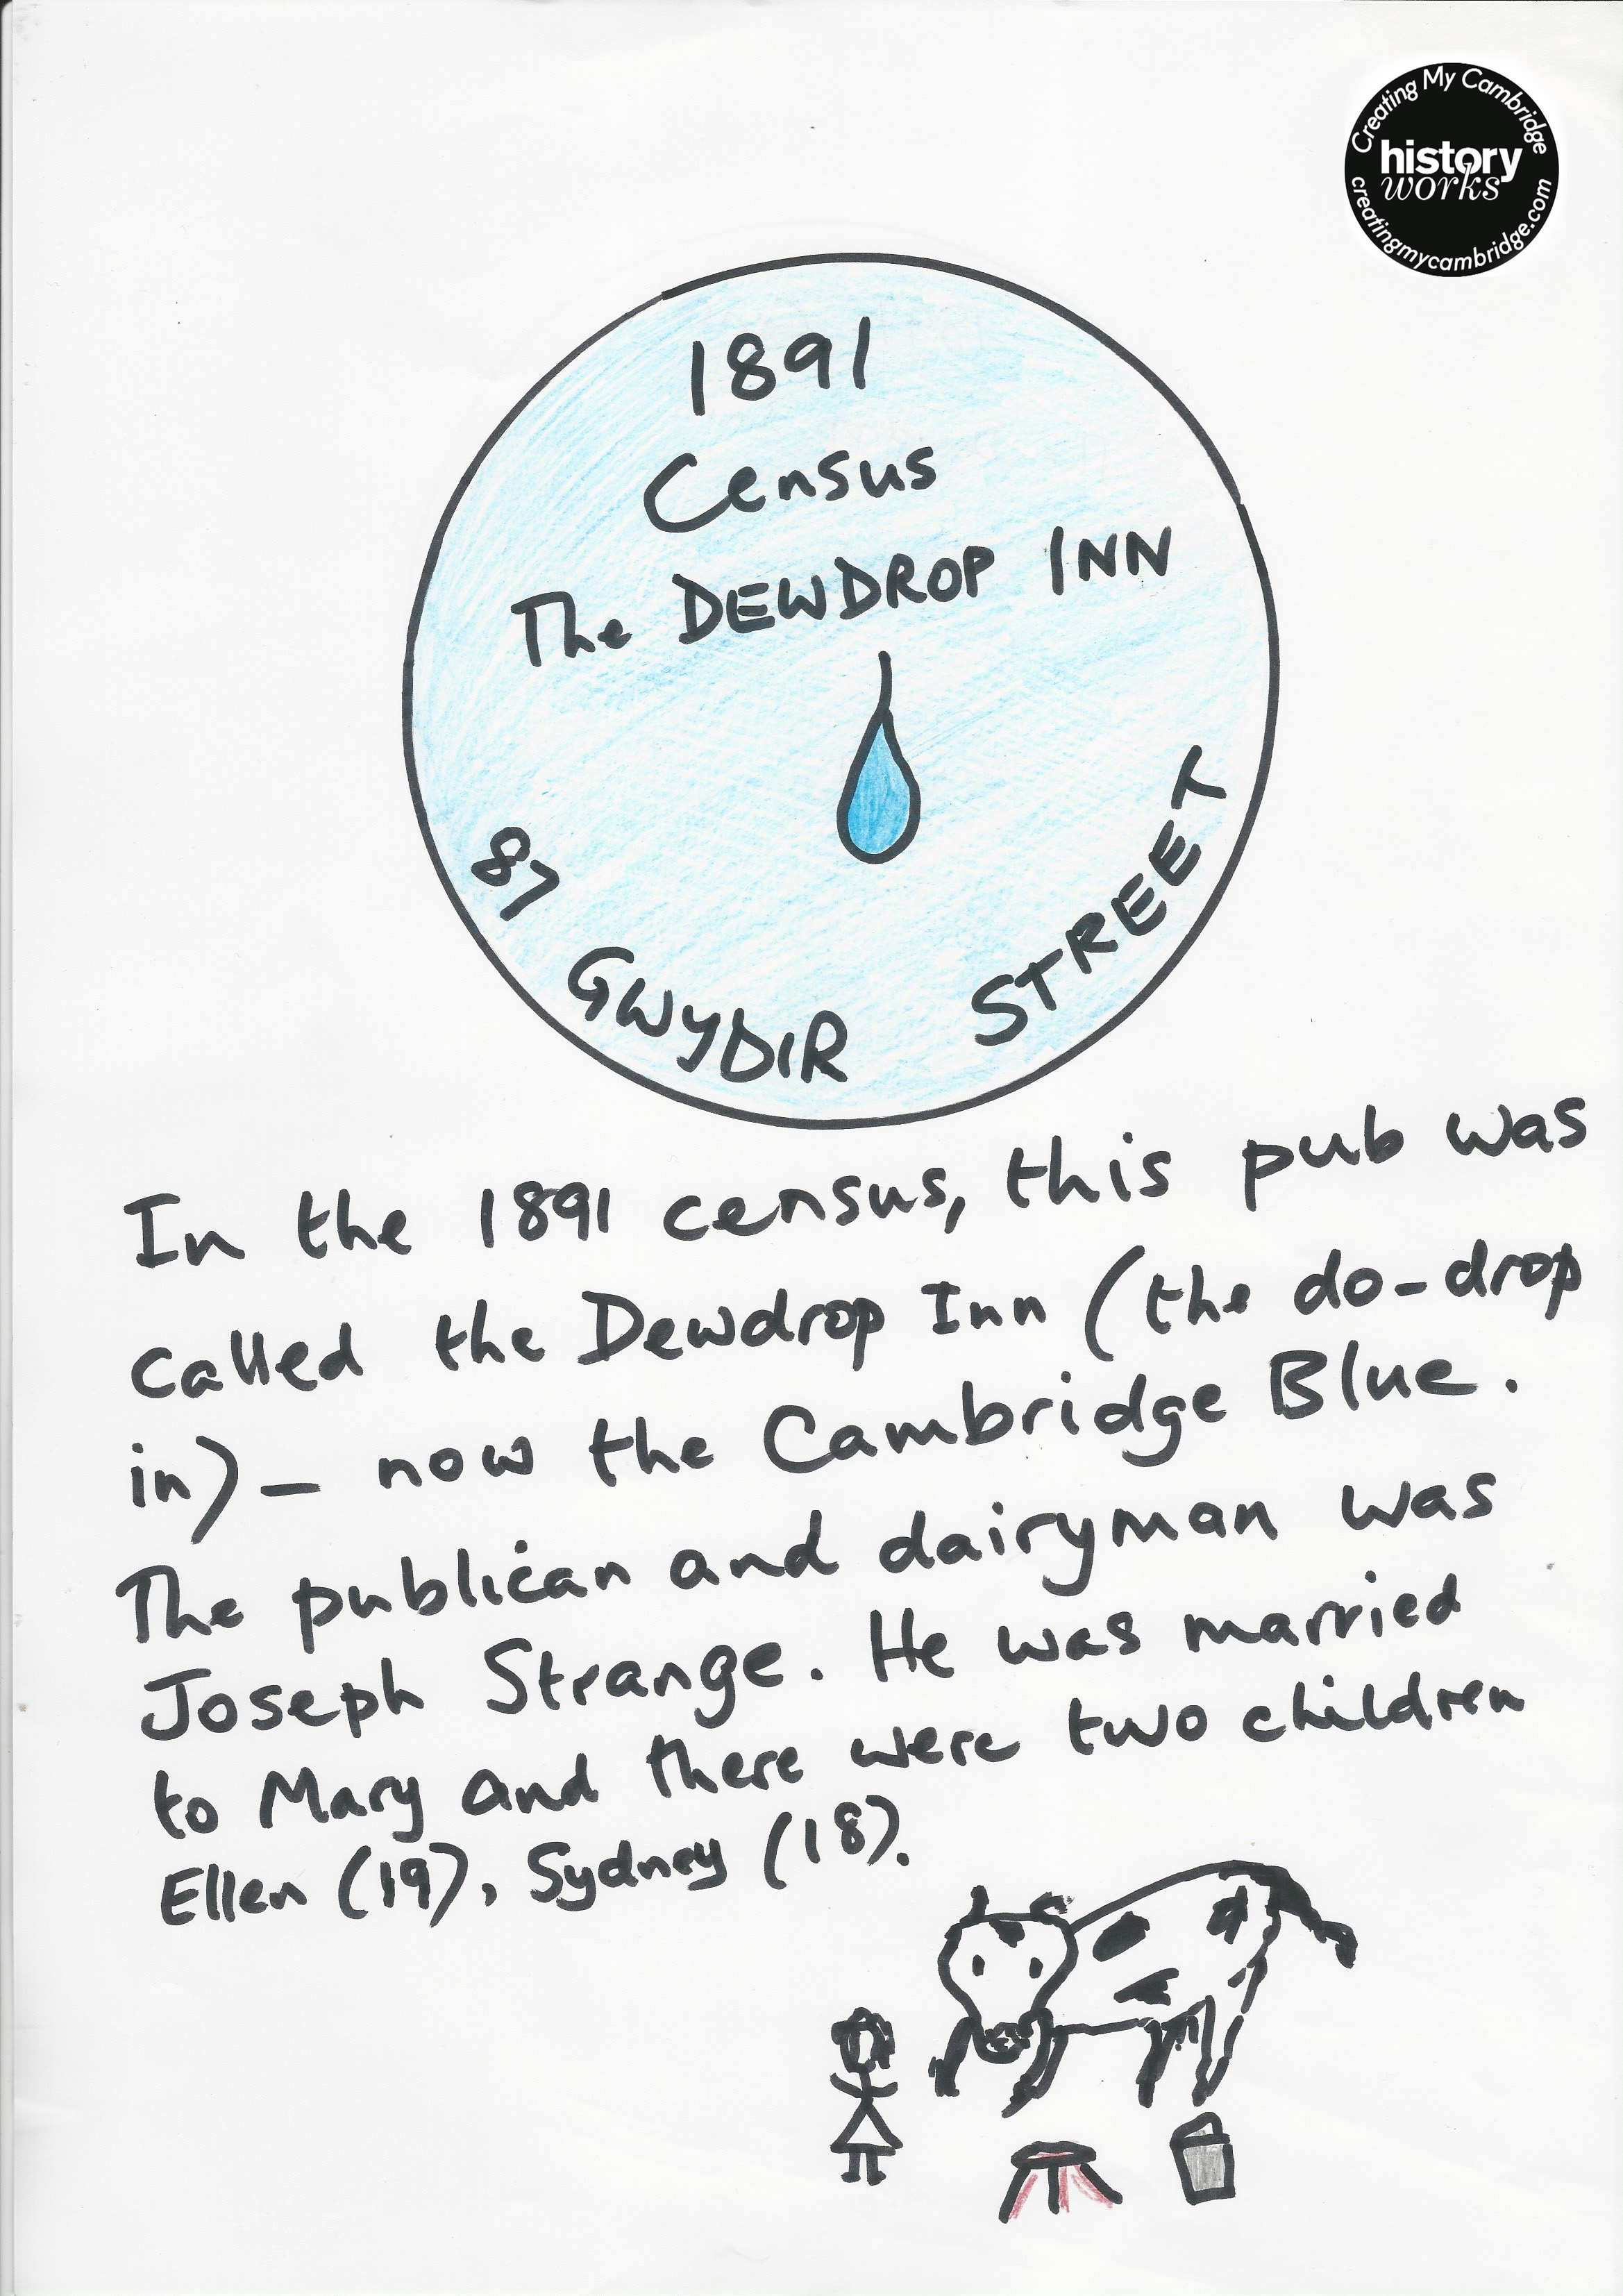 Creating My Cambridge
history
works
creatingmycambridge.com
1891
Census
The DEWDROP INN
87 GWYDIR STREET
In the 1891 census, this pub was
called the Dewdrop Inn (the do-drop
in) – now the Cambridge Blue.
The publican and dairyman was
Joseph Strange. He was married
to Mary and there were two children
Ellen (19), Sydney (18).